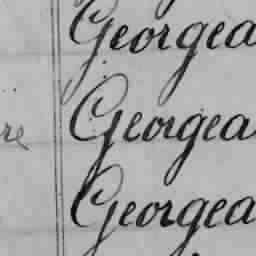 Georgea
re Georgea
Georgea